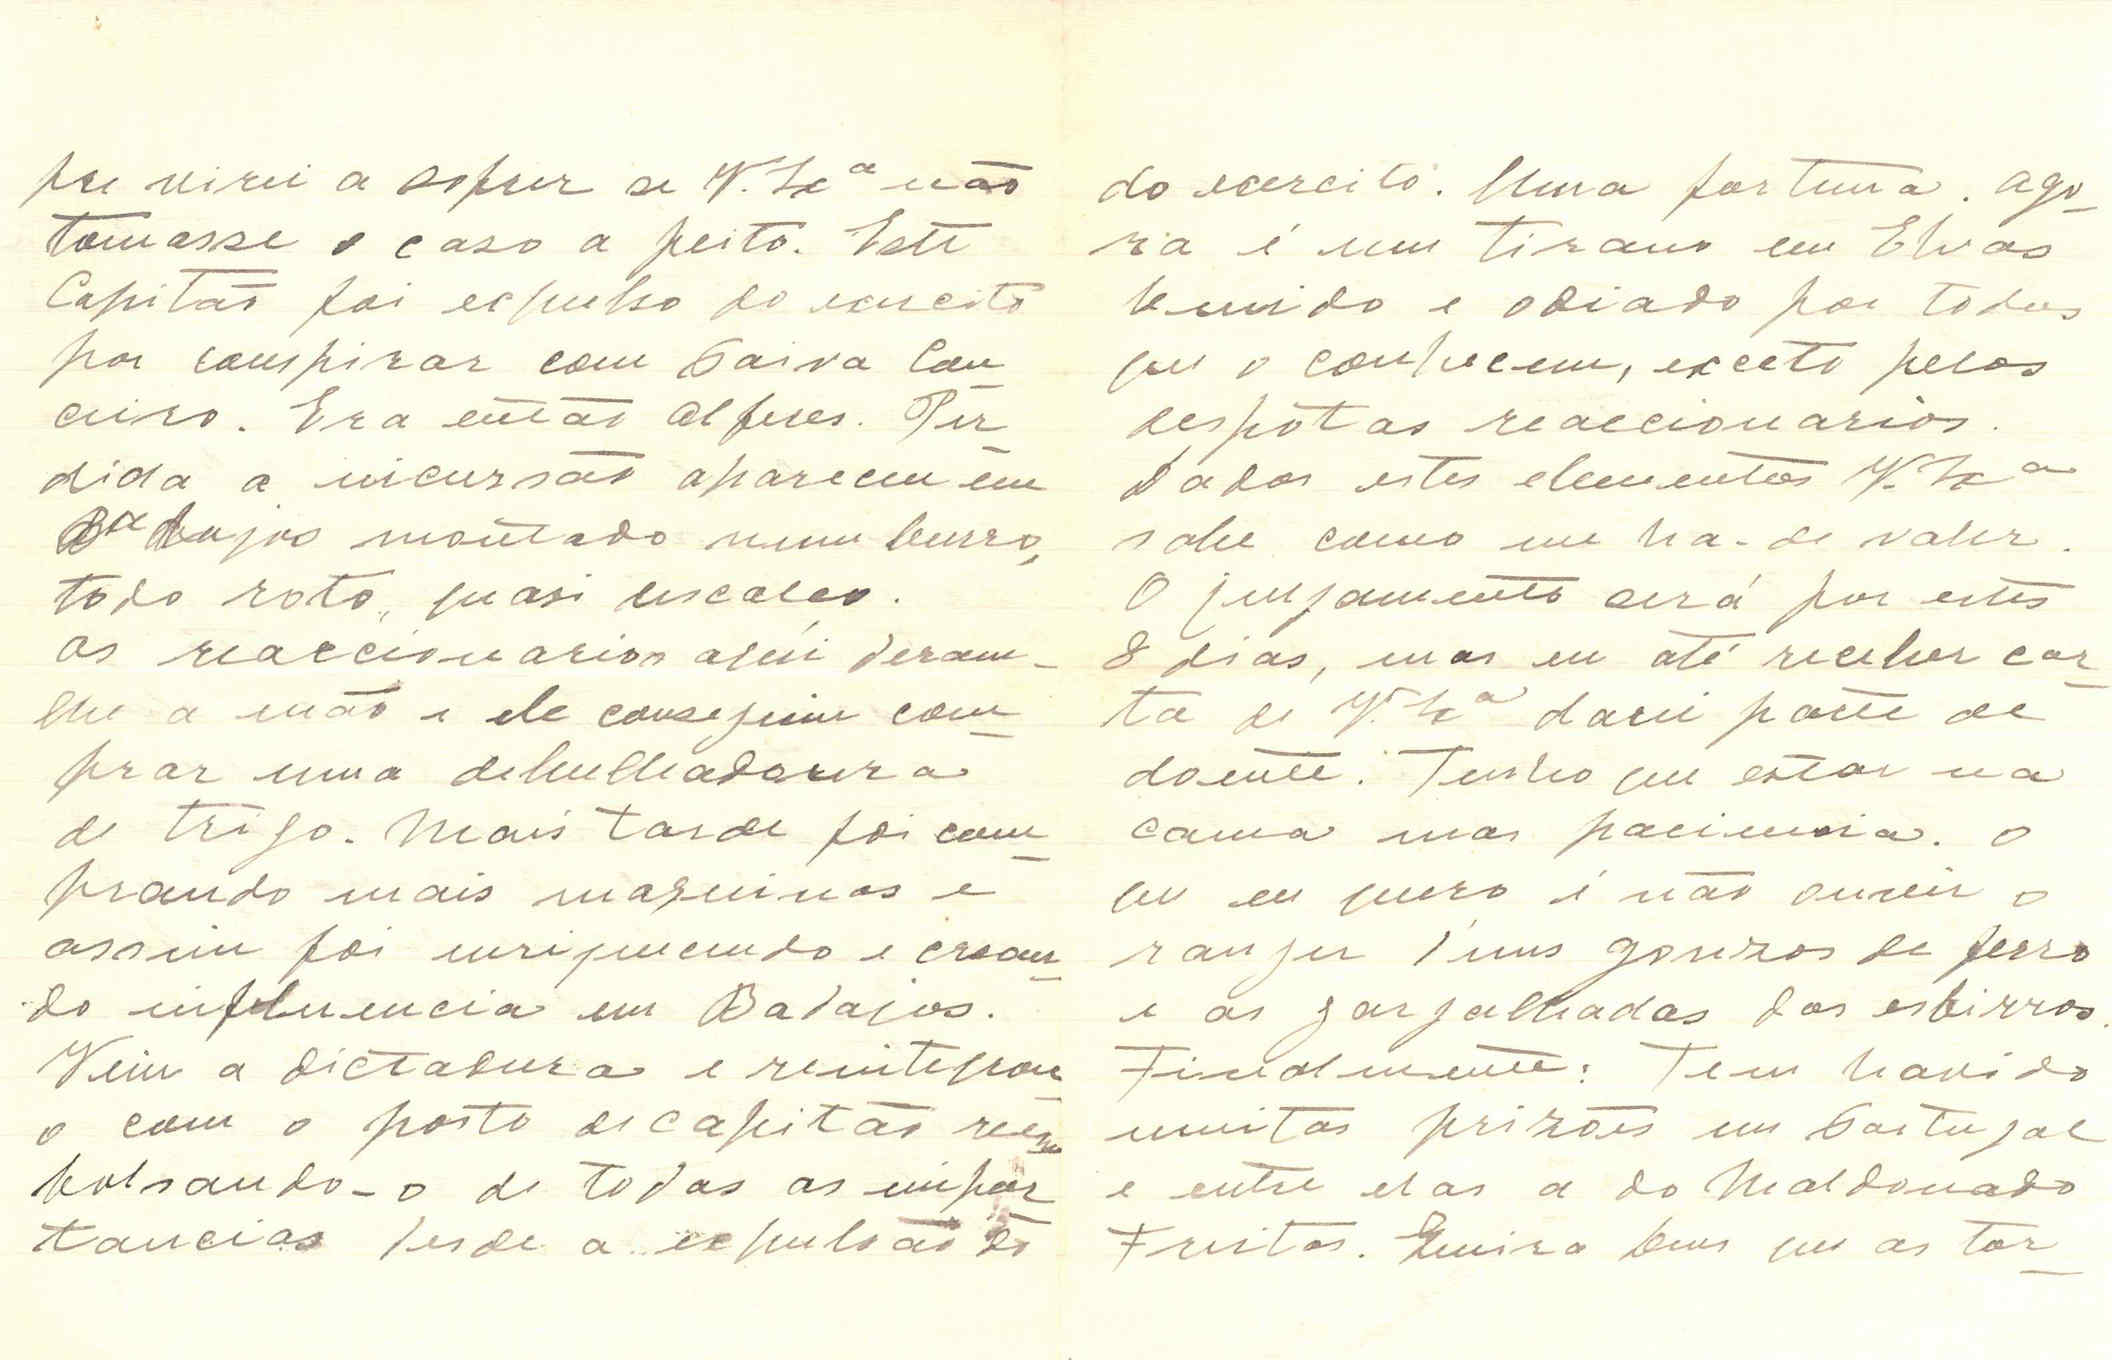 que virei a sofrer se V. Exª não
tomasse o caso a peito. Este
Capitão foi expulso do exercito
por conspirar com Paiva Cou_
ceiro. Era então Alferes. Per_
dida a incursão apareceu em
Badajos montado num burro,
todo roto, quasi descalço.
Os reaccionarios aqui deram-
lhe a mão e ele conseguiu com_
prar uma debulhadoura
de trigo. Mais tarde foi com_
prando mais maquinas e
assim foi enriquecendo e crean_
do influencia em Badajos.
Veiu a dictadura e reintegrou
o com o posto de capitão reem
bolsando-o de todas as impor
tancias desde a expulsão do
do exercito. Uma fortuna. Ago_
ra é um tirano em Elvas
temido e odiado por todos
que o conhecem, exceto pelos
despotas reaccionarios.
Dados estes elementos V. Exª
sabe como me ha-de valer.
O julgamento será por estes
8 dias, mas eu até receber car_
ta de V. Exª darei parte de
doente. Tenho que estar na
cama mas paciencia. O
que eu quero é não ouvir o
ranger d'uns gonzos de ferro
e as gargalhadas dos esbirros.
Finalmente: Tem havido
muitas prizões em Portugal
e entre elas a do Maldonado
Freitas. Queira Deus que as tor_